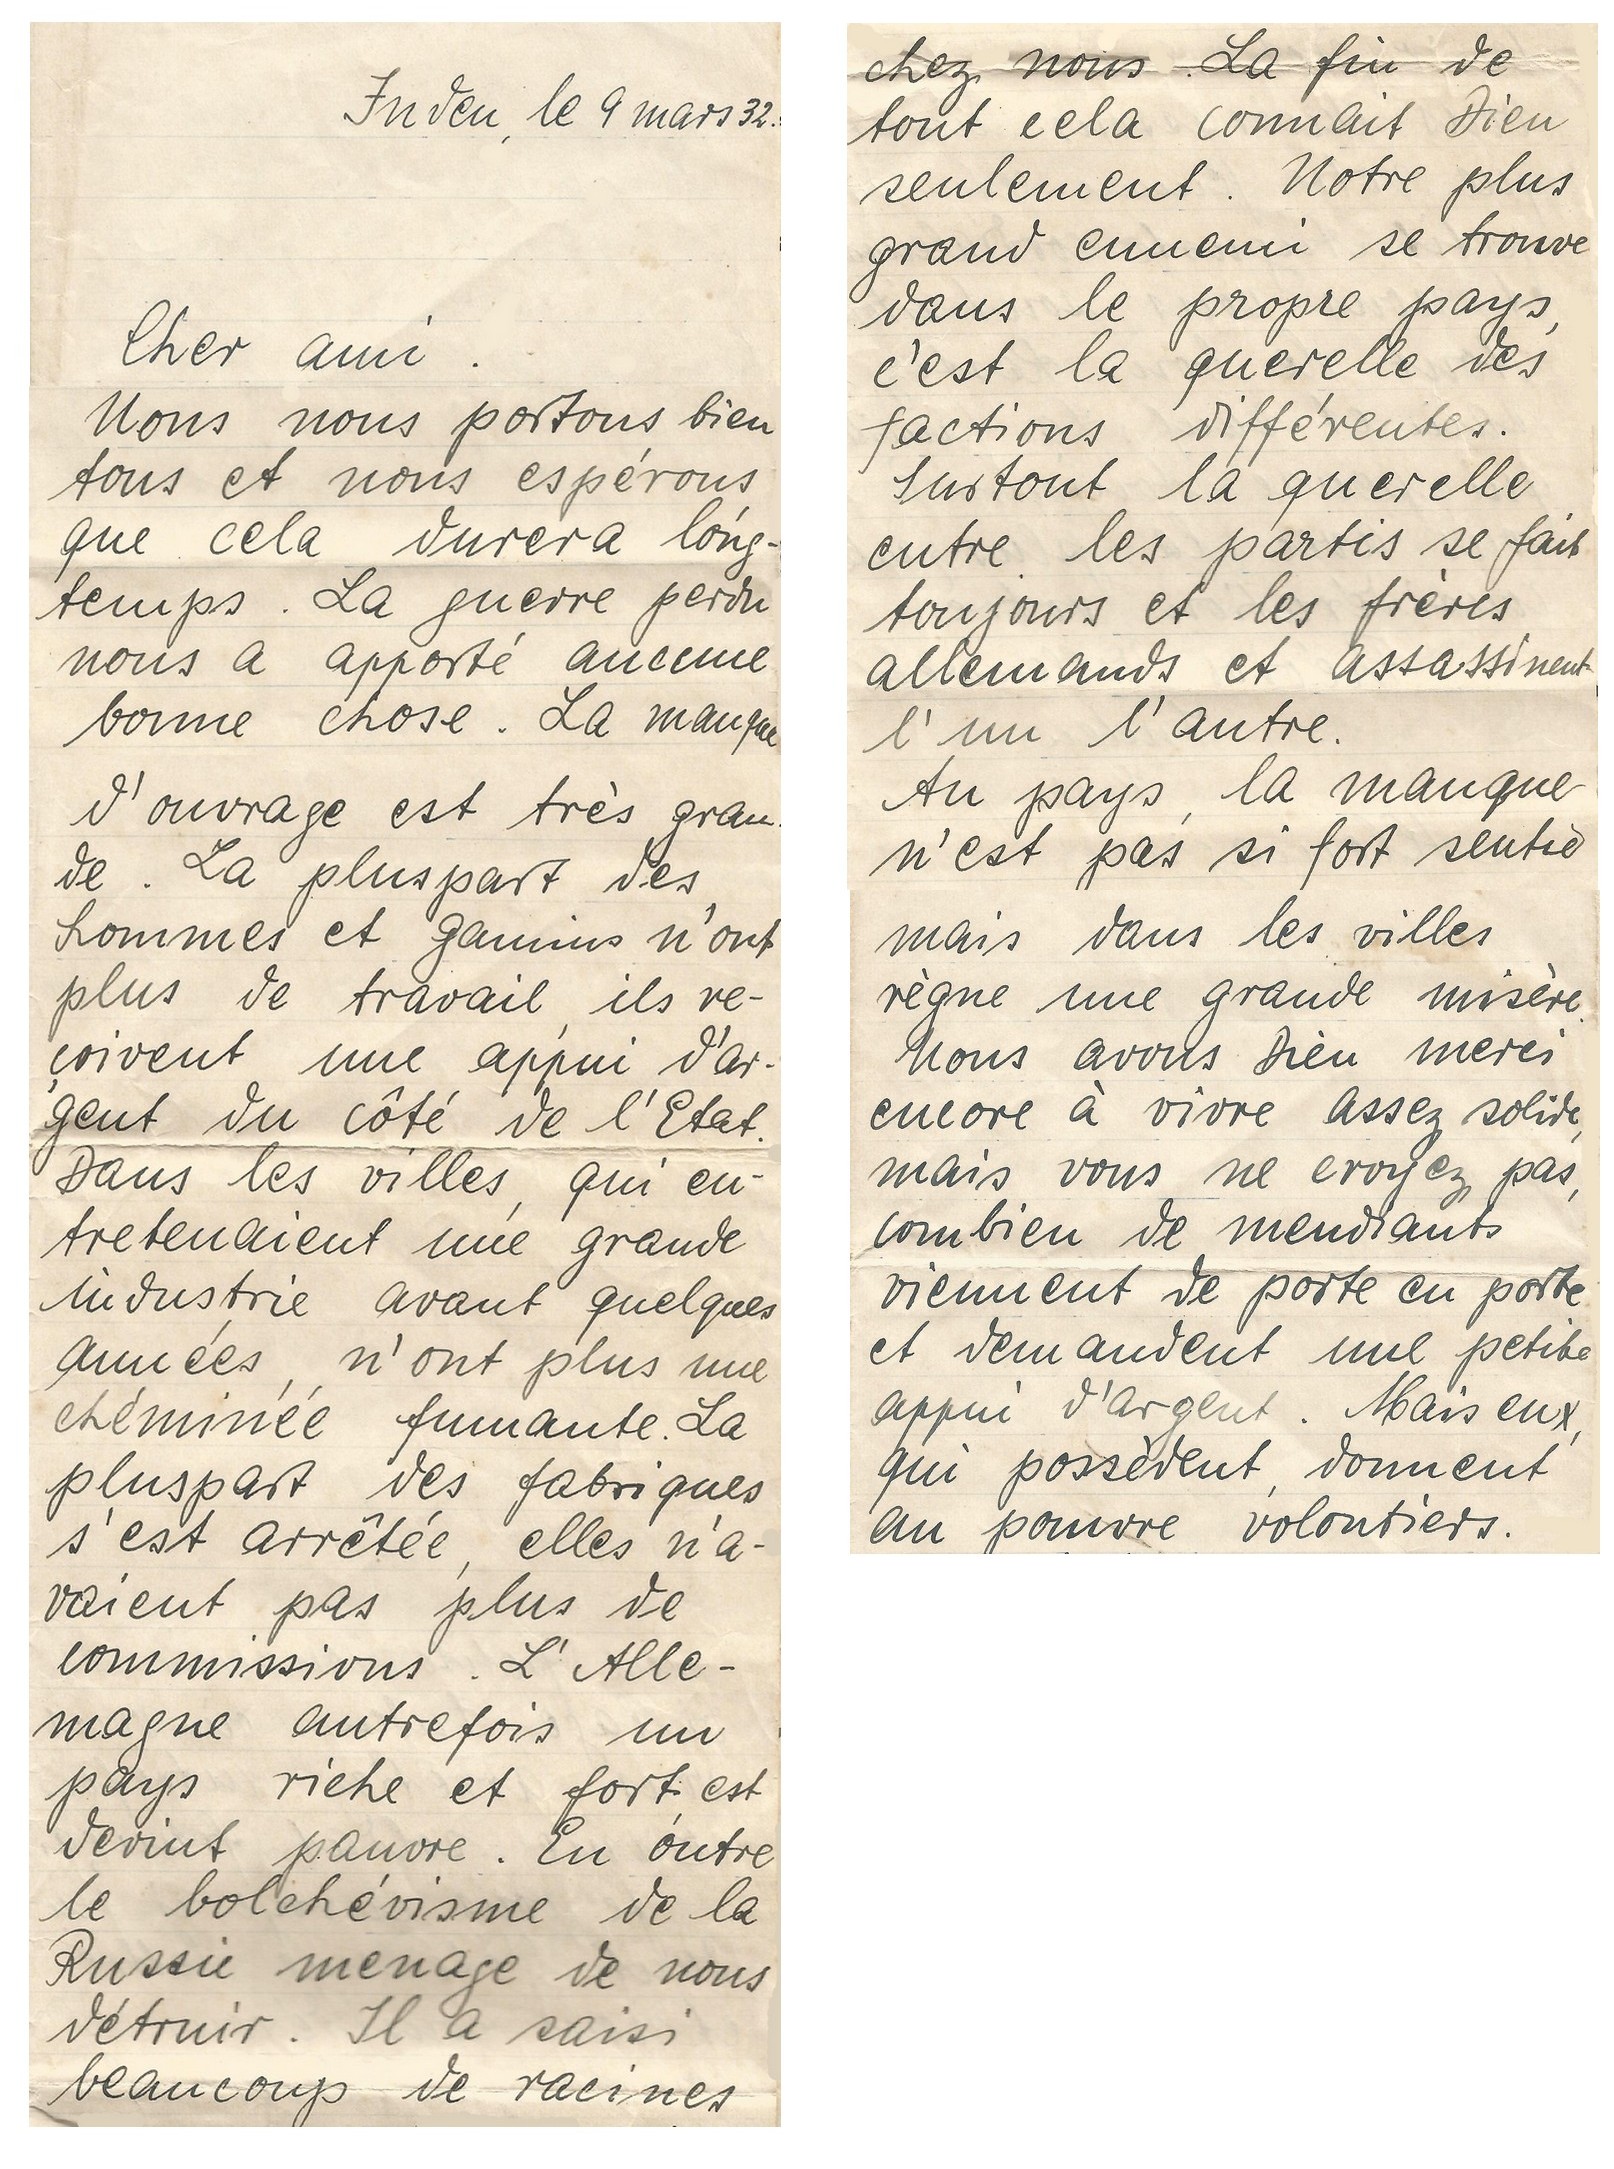 Inden, le 9 mars 32.
Cher ami.
Nous nous portons bien
tous et nous espérons
que cela durera long-
temps. La guerre perdu
nous a apporté aucune
bonne chose. La manque
d'ouvrage est très gran-
de. La pluspart des
hommes et gamins n'ont
plus de travail, ils re-
çoivent une appui d'ar-
gent du côté de l'Etat.
Dans les villes, qui en-
tretenaient une grande
industrie avant quelques
années, n'ont plus une
chéminée fumante. La
pluspart des fabriques
s'est arrêtée, elles n'a-
vaient pas plus de
commissions. L'Alle-
magne autrefois un
pays riche et fort, est
devint pauvre. En outre
le bolchévisme de la
Russie menage de nous
détruir. Il a saisi
beaucoup de racines
chez nous. La fin de
tout cela connait Dieu
seulement. Notre plus
grand ennemi se trouve
dans le propre pays,
c'est la querelle des
factions différentes.
Surtout la querelle
entre les partis se fait
toujours et les frères
allemands et assassinent
l'un l'autre.
Au pays, la manque
n'est pas si fort sentie
mais dans les villes
règne une grande misère.
Nous avons Dieu merci
encore à vivre assez solide,
mais vous ne croyez pas,
combien de mendiants
viennent de porte en porte
et demandent une petite
appui d'argent. Mais eux,
qui possèdent, donnent
au pauvre volontiers.